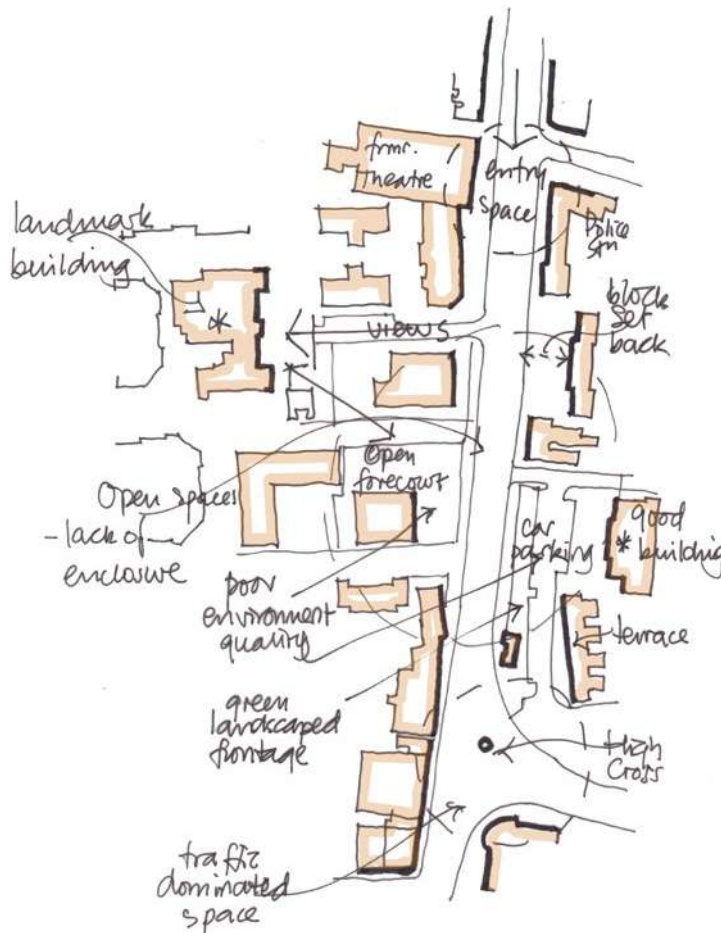 frmr.
theatre
entry
space
Police
stn
landmark
building
block
set
back
views
Open
forecourt
Open spaces
- lack of
enclosure
car
parking
good
building
poor
environment
quality
terrace
green
landscaped
frontage
High
Cross
traffic
dominated
space